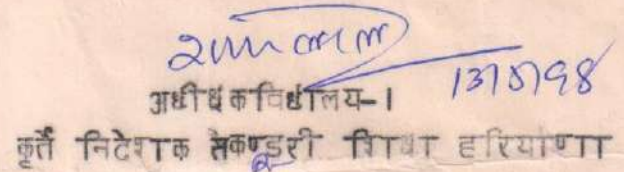 13/5/98
अधीक्षक विद्यालय-1
कृर्ते निदेशक सैकण्डरी शिक्षा हरियाणा